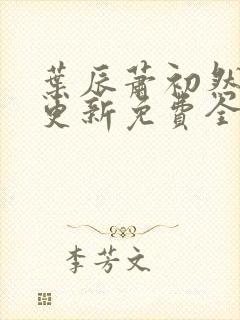 葉辰蕭初然
更新免費全
李芳文